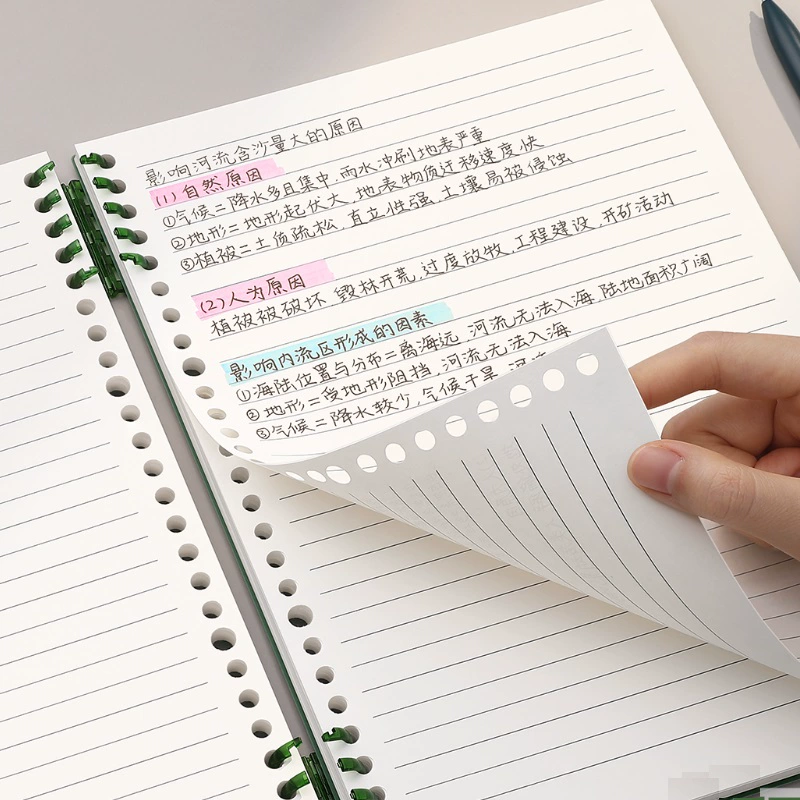 影响河流含沙量大的原因
(1)自然原因
①气候=降水多且集中,雨水冲刷地表严重
②地形=地形起伏大,地表物质迁移速度快
③植被=土质疏松,直立性强,土壤易被侵蚀
(2)人为原因
植被被破坏 毁林开荒,过度放牧,工程建设,开矿活动
影响内流区形成的因素
①海陆位置与分布=离海远,河流无法入海,陆地面积广阔
②地形=受地形阻挡,河流无法入海
③气候=降水较少,气候干旱,河流